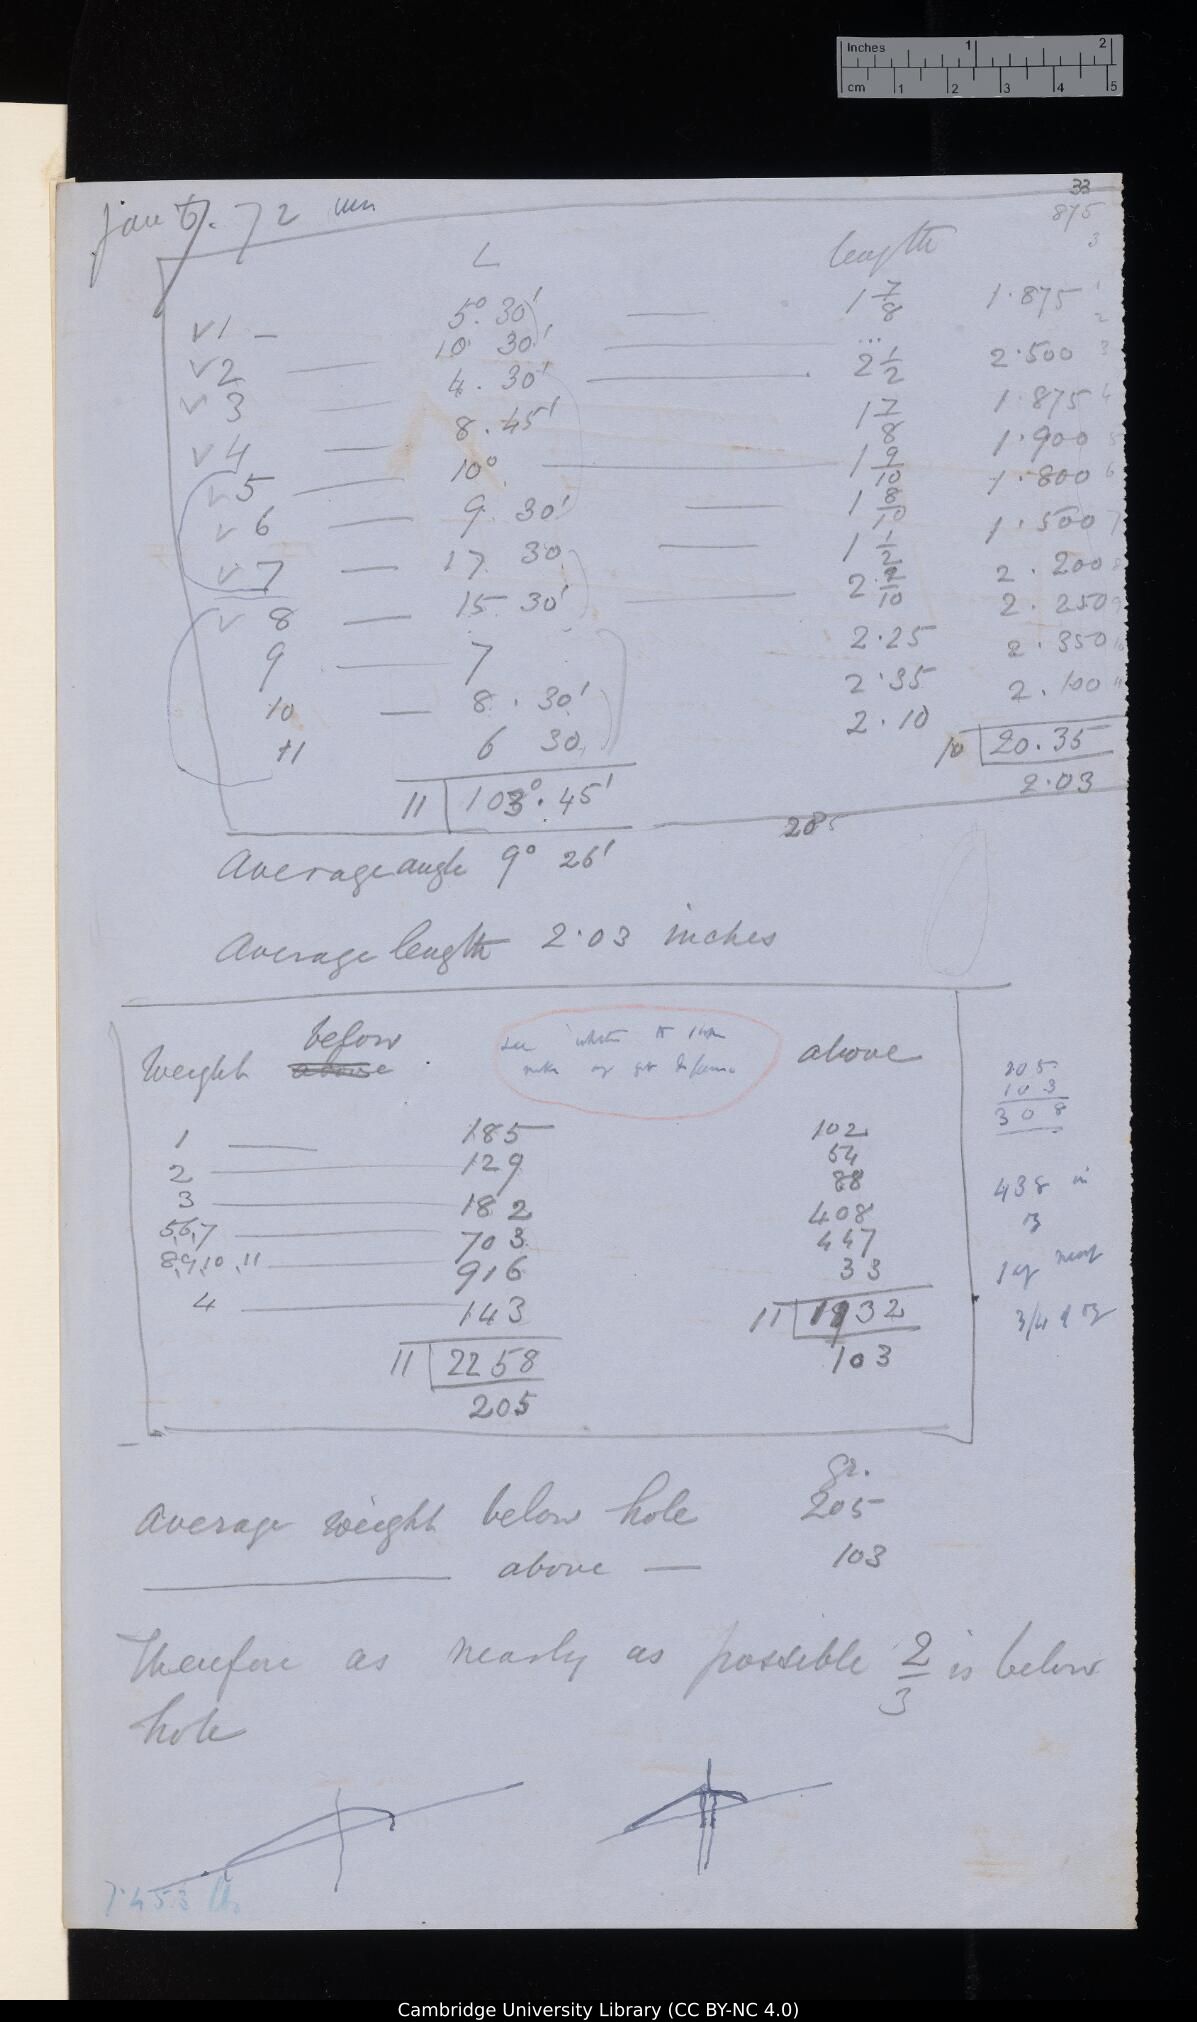 Inches 1 2
cm 1 2 3 4 5
33
Jan 5. 72
875
3
L length
v 1 — 5° 30' — 1 7/8 1.875 1
2
v 2 — 10 30' — ...
v 3 — 4. 30' — 2 1/2 2.500 3
v 4 — 8. 45' 1 7/8 1.875 4
v 5 — 10° — 1 9/10 1.900 5
v 6 — 9. 30' — 1 8/10 1.800 6
v 7 — 17. 30 — 1 1/2 1.500 7
v 8 — 15. 30' — 2. 2/10 2.200 8
9 — 7 2.25 2.250 9
10 — 8. 30' 2.35 2.350 10
11 6 30 2.10 2.100 11
11 | 103°. 45' 10 | 20.35
2.03
205
Average angle 9° 26'
Average length 2.03 inches
Weight below above above
1 — 185 102
2 — 129 54
3 — 182 88
5,6,7 — 703 408
8,9,10,11 — 916 447
4 — 143 33
11 | 2258 11 | 1132
205 103
205
103
308
438 in
3/4 of
gr.
Average weight below hole 205
above — 103
Therefore as nearly as possible 2/3 is below
hole
7.453
Cambridge University Library (CC BY-NC 4.0)